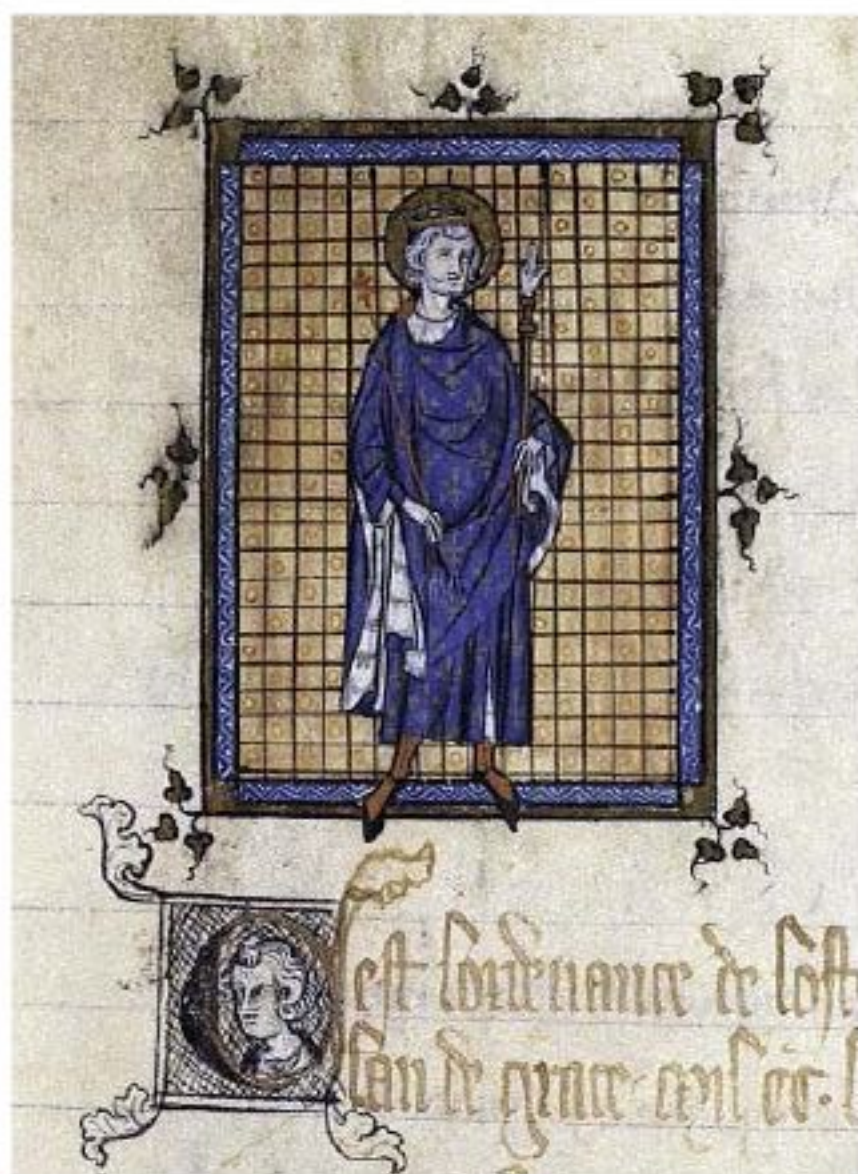 Cest lordenance de lost
lan de grace